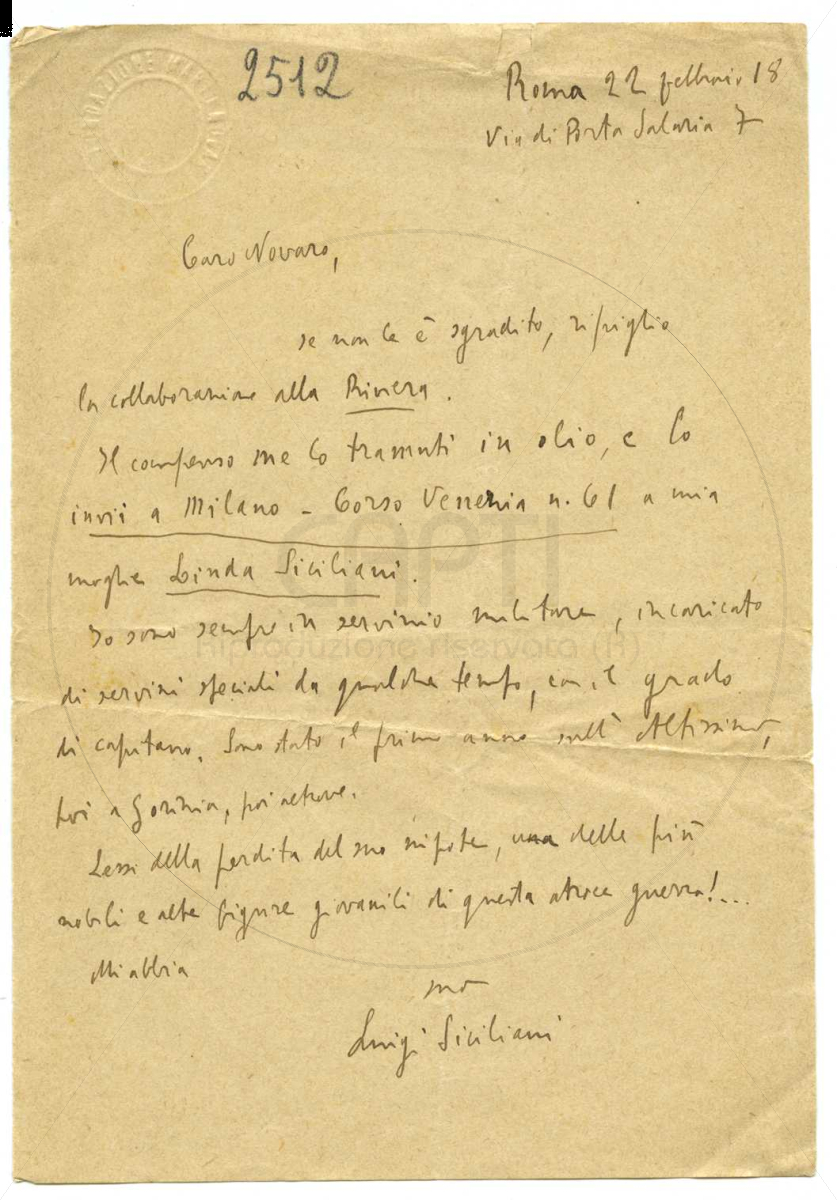 2512
Roma 22 febbraio 18
Via di Porta Salaria 7
Caro Novaro,
se non le è sgradito, ripiglio
la collaborazione alla Riviera.
Il compenso me lo tramuti in olio, e lo
invii a Milano - Corso Venezia n. 61 a mia
moglie Linda Siciliani.
Io sono sempre in servizio militare, incaricato
di servizi speciali da qualche tempo, con il grado
di capitano. Sono stato il primo anno sull'Altissimo,
poi a Gorizia, poi altrove.
Lessi della perdita del suo nipote, una delle più
nobili e alte figure giovanili di questa atroce guerra!...
Mi abbia
suo
Luigi Siciliani
CAPTI
riproduzione riservata (R)